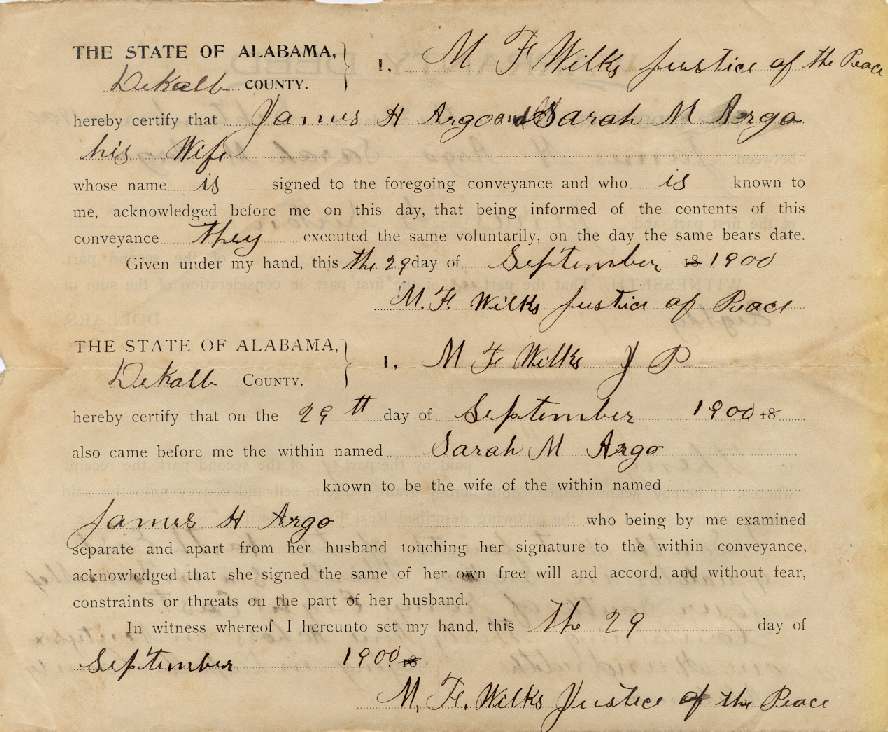 THE STATE OF ALABAMA, } I. M F Wilks Justice of the Peace
DeKalb COUNTY.
hereby certify that James H Argo and Sarah M Argo
his Wife
whose name is signed to the foregoing conveyance and who is known to
me, acknowledged before me on this day, that being informed of the contents of this
conveyance they executed the same voluntarily, on the day the same bears date.
Given under my hand, this the 29 day of September 18 1900
M. F. Wilks Justice of Peace
THE STATE OF ALABAMA, } I. M F Wilks J P
DeKalb COUNTY.
hereby certify that on the 29th day of September 1900 18
also came before me the within named Sarah M Argo
known to be the wife of the within named
James H Argo who being by me examined
separate and apart from her husband touching her signature to the within conveyance,
acknowledged that she signed the same of her own free will and accord, and without fear,
constraints or threats on the part of her husband.
In witness whereof I hereunto set my hand, this the 29 day of
September 1900 18
M, F. Wilks Justice of the Peace